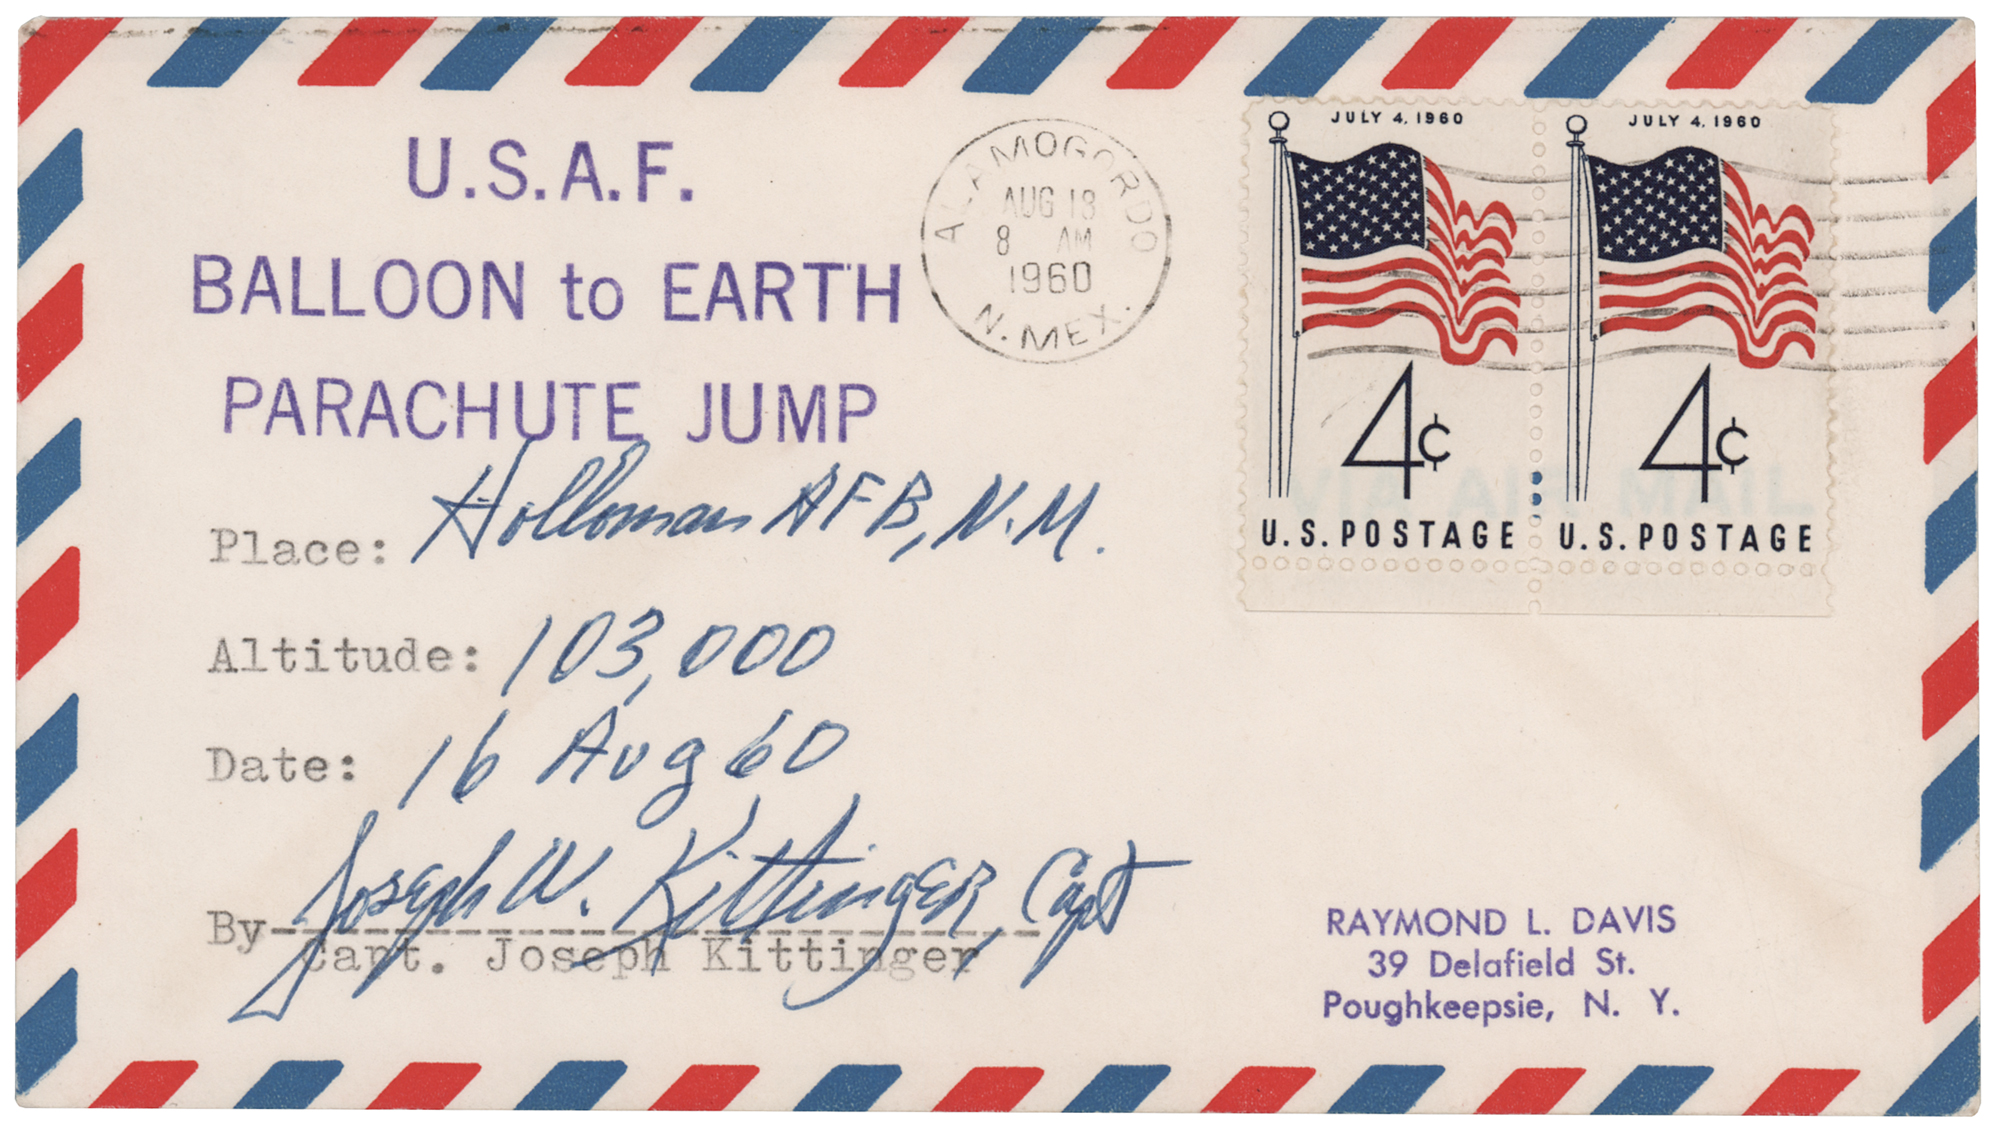 U.S.A.F.
BALLOON to EARTH
PARACHUTE JUMP
Place: Holloman AFB, N.M.
Altitude: 103,000
Date: 16 Aug 60
Joseph W. Kittinger, Capt
By-----------------------
Capt. Joseph Kittinger
ALAMOGORDO
AUG 18
8 AM
1960
N. MEX.
JULY 4, 1960
4¢
U.S. POSTAGE
JULY 4, 1960
4¢
U.S. POSTAGE
VIA AIR MAIL
RAYMOND L. DAVIS
39 Delafield St.
Poughkeepsie, N. Y.